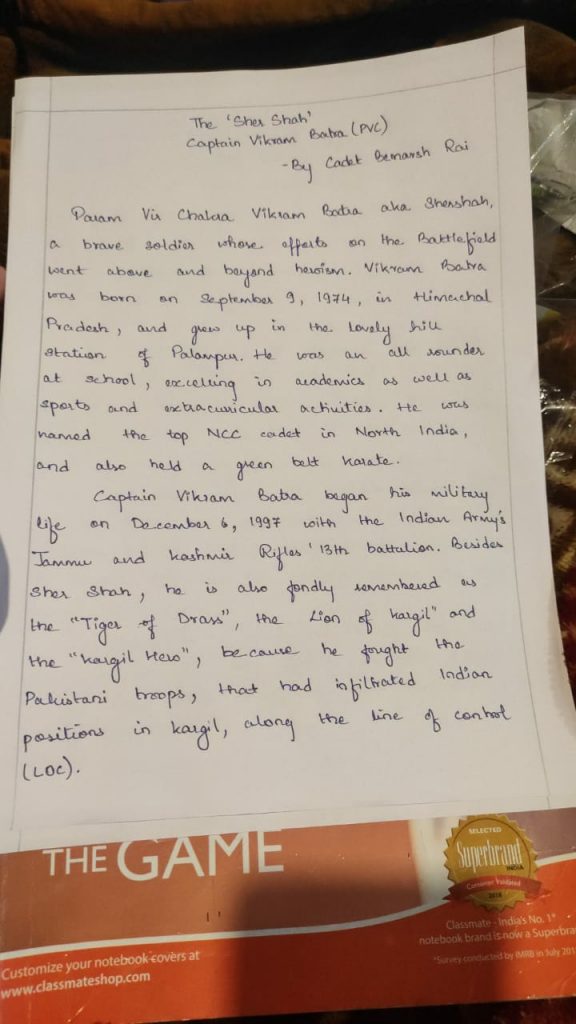 The 'Sher Shah'
Captain Vikram Batra (PVC)
-By Cadet Bemarsh Rai
Param Vir Chakra Vikram Batra aka Shershah,
a brave soldier whose efforts on the Battlefield
went above and beyond heroism. Vikram Batra
was born on September 9, 1974, in Himachal
Pradesh, and grew up in the lovely hill
station of Palampur. He was an all rounder
at school, excelling in academics as well as
sports and extracuricular activities. He was
named the top NCC cadet in North India,
and also held a green belt karate.
Captain Vikram Batra began his military
life on December 6, 1997 with the Indian Army's
Jammu and Kashmir Rifles' 13th battalion. Besides
Sher Shah, he is also fondly remembered as
the "Tiger of Drass", the Lion of Kargil" and
the "Kargil Hero", because he fought the
Pakistani troops, that had infiltrated Indian
positions in Kargil, along the line of control
(LOC).
THE GAME
SELECTED
Superbrand
INDIA
Consumer Validated
2018
Classmate - India's No. 1*
notebook brand is now a Superbra
*Survey conducted by IMRB in July 201
Customize your notebook covers at
www.classmateshop.com